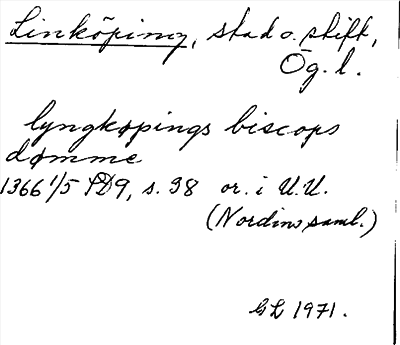 Linköping, stad o. stift,
Ög. l.
lyngkøpings biscops
dømme
1366 1/5 SD9, s. 38 or. i U.U.
(Nordins saml.)
GL 1971.